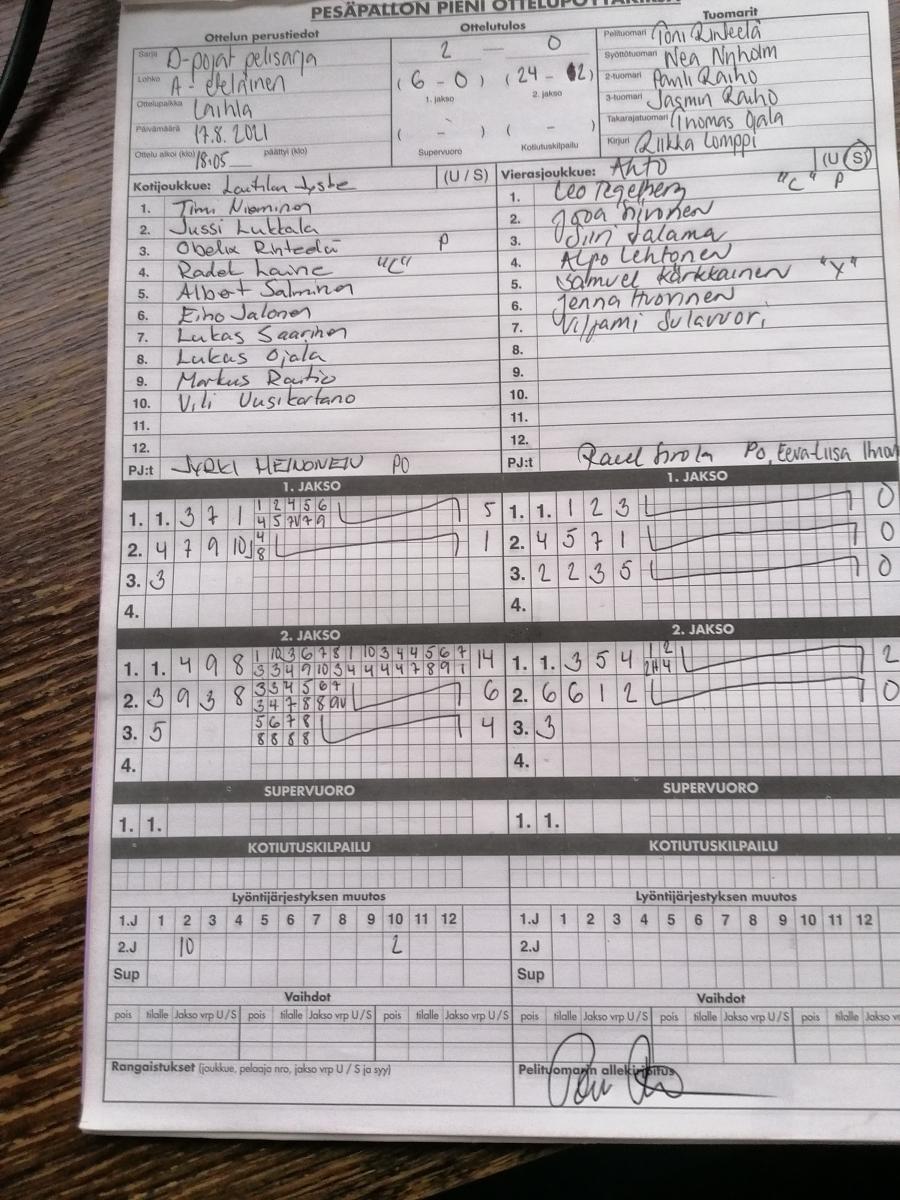 PESÄPALLON PIENI OTTELUPÖYTÄKIRJA
Ottelun perustiedot
Sarja D-pojat pelisarja
Lohko A-eteläinen
Ottelupaikka Laihla
Päivämäärä 17.8.2021
Ottelu alkoi (klo) 18.05 päättyi (klo)
Ottelutulos
2 — 0
(6 - 0) (24 - 2)
1. jakso 2. jakso
( - ) ( - )
Supervuoro Kotiutuskilpailu
Tuomarit
Pelituomari Toni Rinteelä
Syöttötuomari Nea Ninholm
2-tuomari Pauli Raiho
3-tuomari Jasmin Raiho
Takarajatuomari Thomas Ojala
Kirjuri Riikka Lomppi
Kotijoukkue: (U / S)
1. Timi Nieminen
2. Jussi Lukkala
3. Obelix Rinteelä P
4. Radek Laine "C"
5. Albert Salminen
6. Eino Jalonen
7. Lukas Saarinen
8. Lukas Ojala
9. Markus Rautio
10. Vili Uusikartano
11.
12.
PJ:t JYRKI HEINONEN PO
Vierasjoukkue: Ahto (U S)
1. Leo Tegelberg "C" P
2. Sironen
3. Siiri Salama
4. Alpo Lehtonen
5. Samuel Kärkkäinen "Y"
6. Jenna Huovinen
7. Viljami Sulavuori
8.
9.
10.
11.
12.
PJ:t Sirola PO, Eeva-Liisa
1. JAKSO
1. 1. 3 7 1 1 2 4 5 6 5
2. 4 7 9 10 4 8 1
3. 3
4.
1. JAKSO
1. 1. 1 2 3 0
2. 4 5 7 1 0
3. 2 2 3 5 0
4.
2. JAKSO
1. 1. 4 9 8 1 10 3 6 7 8 1 10 3 4 4 5 6 7 14
3 3 4 9 10 3 4 4 4 4 7 8 9 1
2. 3 9 3 8 3 3 4 5 6 7 6
3. 5 5 6 7 8 4
8 8 8 8
4.
2. JAKSO
1. 1. 3 5 4 1 2 2
2. 6 6 1 2 0
3. 3
4.
SUPERVUORO
1. 1.
SUPERVUORO
1. 1.
KOTIUTUSKILPAILU
KOTIUTUSKILPAILU
Lyöntijärjestyksen muutos
1.J 1 2 3 4 5 6 7 8 9 10 11 12
2.J 10 2
Sup
Lyöntijärjestyksen muutos
1.J 1 2 3 4 5 6 7 8 9 10 11 12
2.J
Sup
Vaihdot
pois tilalle Jakso vrp U / S pois tilalle Jakso vrp U / S pois tilalle Jakso vrp U / S
Vaihdot
pois tilalle Jakso vrp U / S pois tilalle Jakso vrp U / S pois tilalle Jakso v
Rangaistukset (joukkue, pelaaja nro, jakso vrp U / S ja syy)
Pelituomarin allekirjoitus